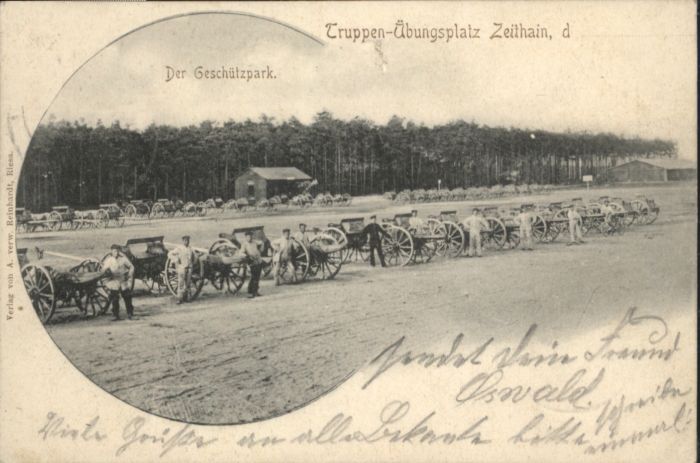 Truppen-Übungsplatz Zeithain, d
Der Geschützpark.
Verlag von A. verw. Reinhardt, Riesa.
sendet Dein Freund
Oswald.
Viele Grüße an alle Bekante bitte schreibe
einmal!